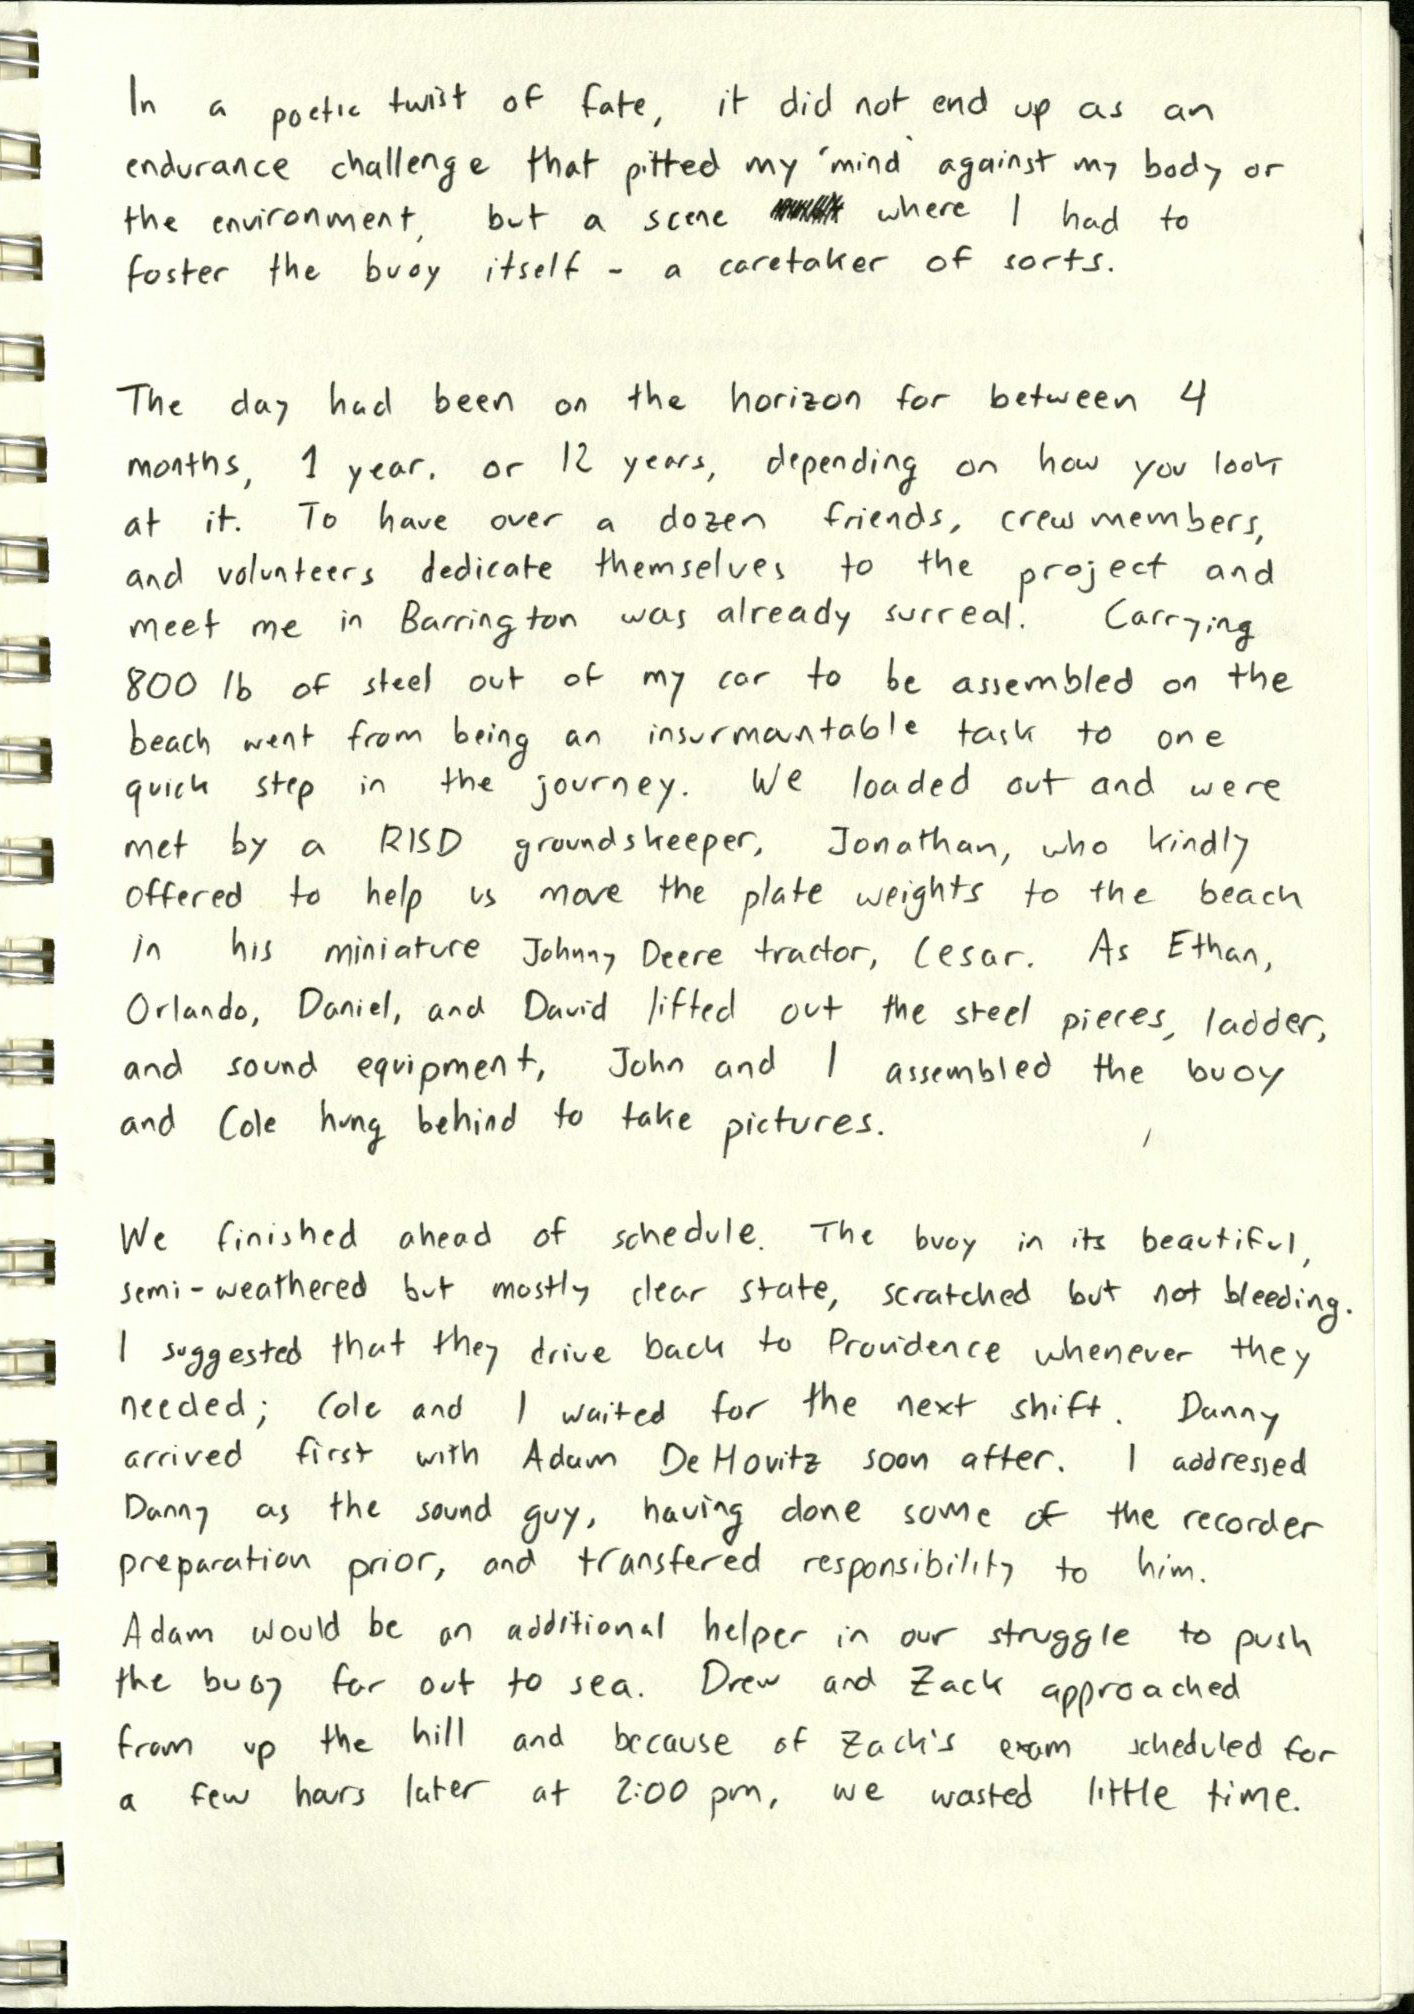 In a poetic twist of fate, it did not end up as an
endurance challenge that pitted my 'mind' against my body or
the environment, but a scene where I had to
foster the buoy itself - a caretaker of sorts.
The day had been on the horizon for between 4
months, 1 year. or 12 years, depending on how you look
at it. To have over a dozen friends, crewmembers,
and volunteers dedicate themselves to the project and
meet me in Barrington was already surreal. Carrying
800 lb of steel out of my car to be assembled on the
beach went from being an insurmountable task to one
quick step in the journey. We loaded out and were
met by a RISD groundskeeper, Jonathan, who kindly
offered to help us move the plate weights to the beach
in his miniature Johnny Deere tractor, Cesar. As Ethan,
Orlando, Daniel, and David lifted out the steel pieces, ladder,
and sound equipment, John and I assembled the buoy
and Cole hung behind to take pictures.
We finished ahead of schedule. The buoy in its beautiful,
semi-weathered but mostly clear state, scratched but not bleeding.
I suggested that they drive back to Providence whenever they
needed; Cole and I waited for the next shift. Danny
arrived first with Adam DeHovitz soon after. I addressed
Danny as the sound guy, having done some of the recorder
preparation prior, and transfered responsibility to him.
Adam would be an additional helper in our struggle to push
the buoy far out to sea. Drew and Zack approached
from up the hill and because of Zack's exam scheduled for
a few hours later at 2:00 pm, we wasted little time.